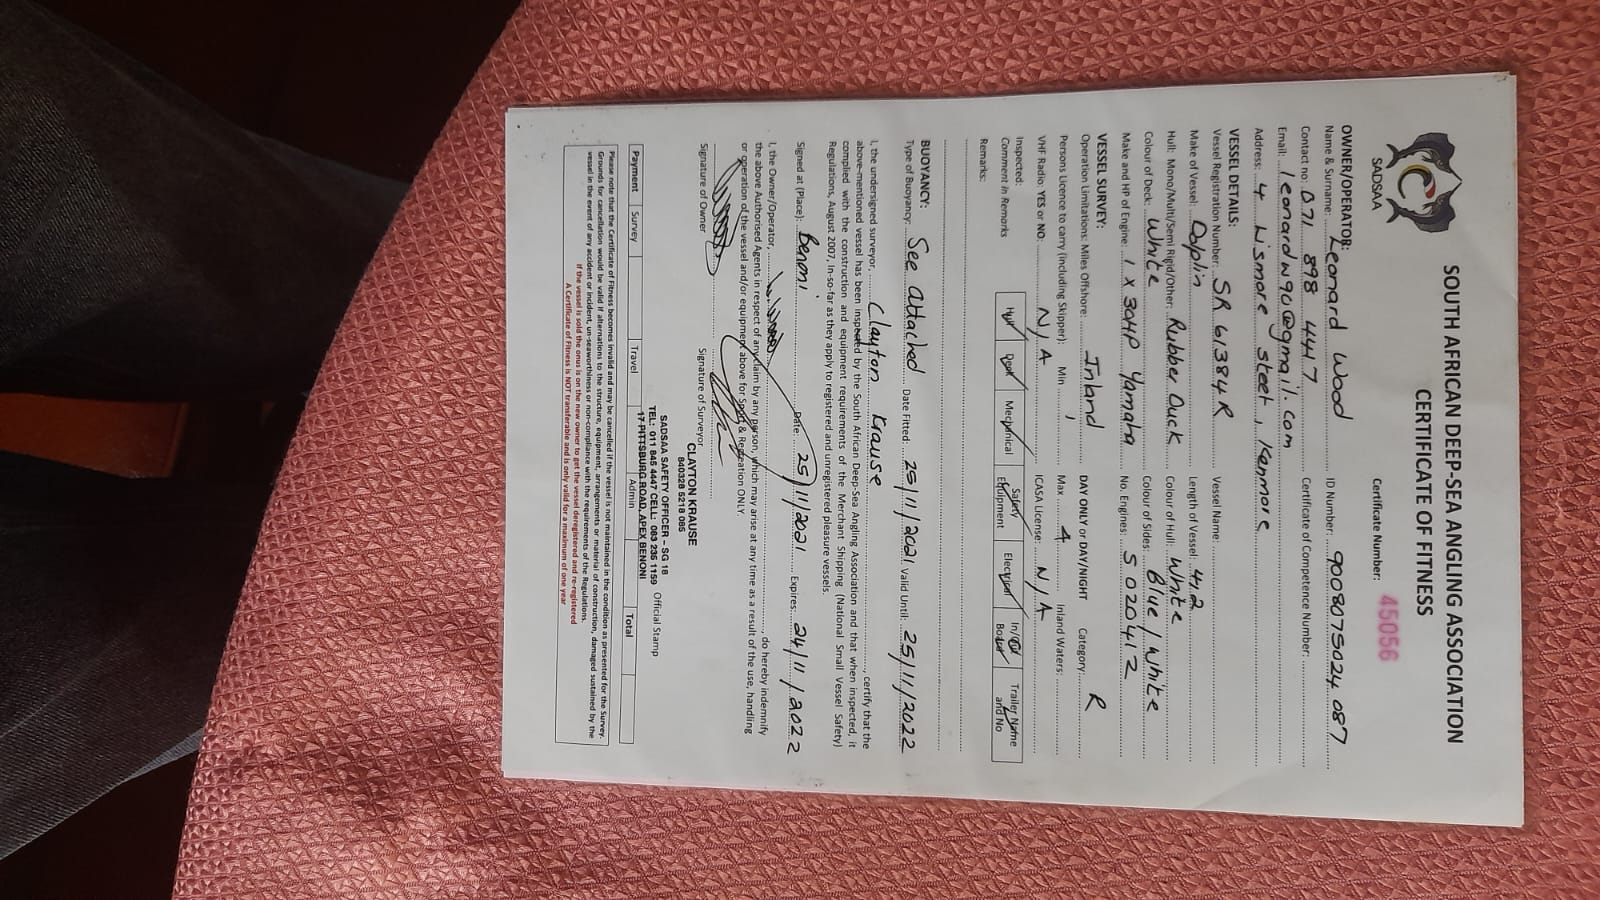 SADSAA
SOUTH AFRICAN DEEP-SEA ANGLING ASSOCIATION
CERTIFICATE OF FITNESS
Certificate Number: 45056
OWNER/OPERATOR:
Name & Surname: Leonard Wood ID Number: 9008075024 087
Contact no: 071 898 4417 Certificate of Competence Number:
Email: leonardw90@gmail.com
Address: 4 Lismore Steet, Kenmore
VESSEL DETAILS:
Vessel Registration Number: SR 61384R Vessel Name:
Make of Vessel: Dolphin Length of Vessel: 4,2
Hull: Mono/Multi/Semi Rigid/Other: Rubber Duck Colour of Hull: White
Colour of Deck: White Colour of Sides: Blue / White
Make and HP of Engine: 1 x 30HP Yamaha No. Engines: S 020412
VESSEL SURVEY:
Operation Limitations: Miles Offshore: Inland DAY ONLY or DAY/NIGHT Category: R
Persons Licence to carry (including Skipper): Min 1 Max 4 Inland Waters:
VHF Radio: YES or NO: N/A ICASA License: N/A
Inspected: Hull Deck Mechanical Safety Equipment Electrical In/Out Board Trailer Name and No
Comment in Remarks
Remarks:
BUOYANCY:
Type of Buoyancy: See attached Date Fitted: 25/11/2021 Valid Until: 25/11/2022
I, the undersigned surveyor, Clayton Krause, certify that the
above-mentioned vessel has been inspected by the South African Deep-Sea Angling Association and that when inspected, it
complied with the construction and equipment requirements of the Merchant Shipping (National Small Vessel Safety)
Regulations, August 2007, in-so-far as they apply to registered and unregistered pleasure vessels.
Signed at (Place): Benoni Date: 25/11/2021 Expires: 24/11/2022
I, the Owner/Operator, , do hereby indemnify
the above Authorised Agents in respect of any claim by any person, which may arise at any time as a result of the use, handling
or operation of the vessel and/or equipment above for Sport & Recreation ONLY.
Signature of Owner Signature of Surveyor Official Stamp
CLAYTON KRAUSE
840328 5218 085
SADSAA SAFETY OFFICER – SG 18
TEL: 011 845 4447 CELL: 083 235 1159
17 PITTSBURG ROAD, APEX BENONI
Payment Survey Travel Admin Total
Please note that the Certificate of Fitness becomes invalid and may be cancelled if the vessel is not maintained in the condition as presented for the Survey.
Grounds for cancellation would be valid if alternations to the structure, equipment, arrangements or material of construction, damaged sustained by the
vessel in the event of any accident or incident, un-seaworthiness or non-compliance with the requirements of the Regulations.
If the vessel is sold the onus is on the new owner to get the vessel deregistered and re-registered
A Certificate of Fitness is NOT transferable and is only valid for a maximum of one year